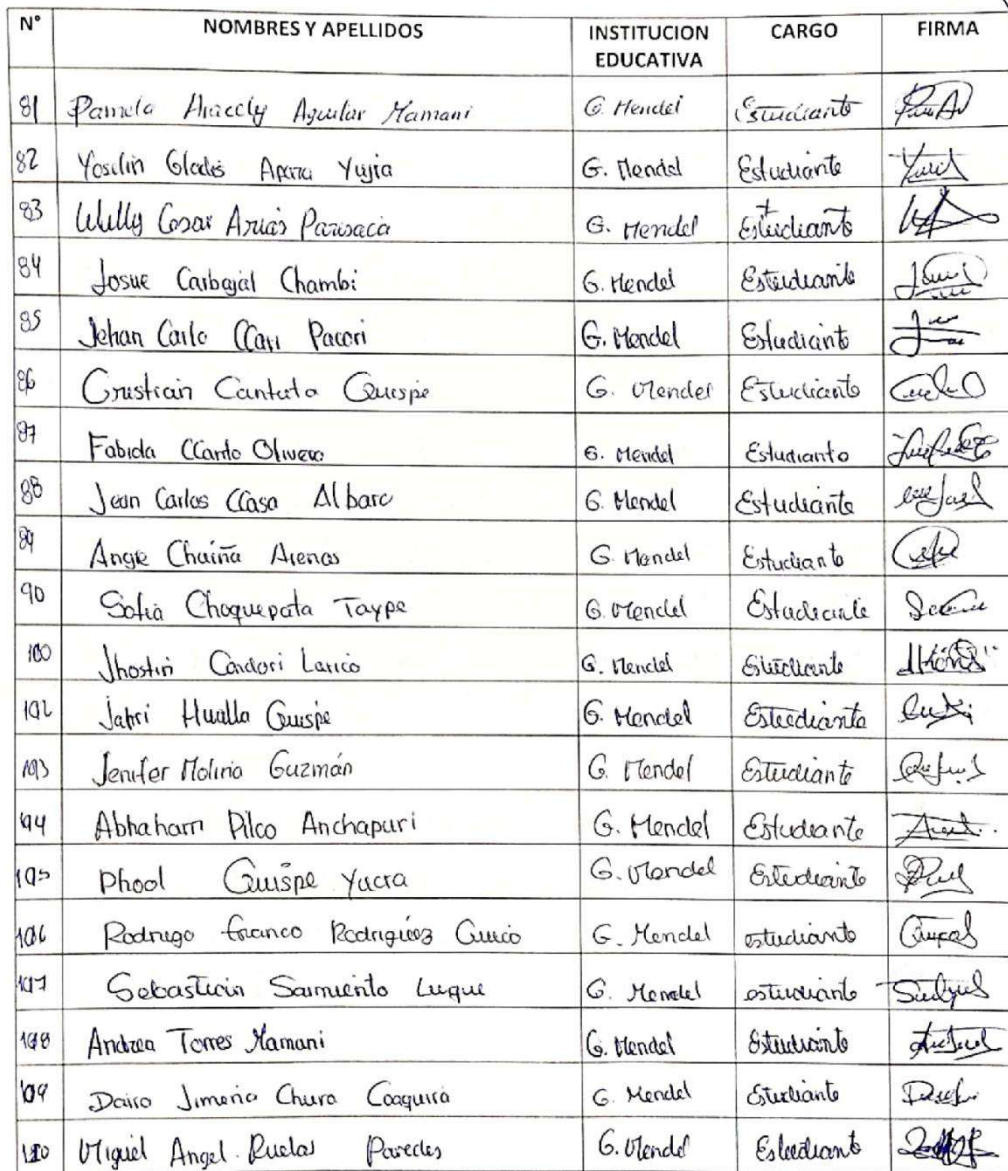 N° NOMBRES Y APELLIDOS INSTITUCION EDUCATIVA CARGO FIRMA
81 Pamela Aracely Aguilar Mamani G. Mendel Estudiante
82 Yoselin Glades Apaza Yujia G. Mendel Estudiante
83 Willy Cesar Arias Parisaca G. Mendel Estudiante
84 Josue Carbajal Chambi G. Mendel Estudiante
85 Jehan Carlo CCari Pacori G. Mendel Estudiante
86 Cristian Cantuta Quispe G. Mendel Estudiante
87 Fabiola CCanto Olivera G. Mendel Estudiante
88 Jean Carlos CCasa Albarc G. Mendel Estudiante
89 Angie Chaiña Arenas G. Mendel Estudiante
90 Sofia Choquepata Taype G. Mendel Estudiante
100 Jhostin Condori Larico G. Mendel Estudiante
Jafri Hualla Quispe G. Mendel Estudiante
103 Jenifer Molina Guzmán G. Mendel Estudiante
Abhaham Pilco Anchapuri G. Mendel Estudiante
105 Phool Quispe Yucra G. Mendel Estudiante
106 Rodrigo Franco Rodriguez G. Mendel estudiante
107 Sebastian Sarmiento Luque G. Mendel estudiante
108 Andrea Torres Mamani G. Mendel Estudiante
109 Jimena Chura Coaquira G. Mendel Estudiante
110 Miguel Angel Ruelas Paredes G. Mendel Estudiante